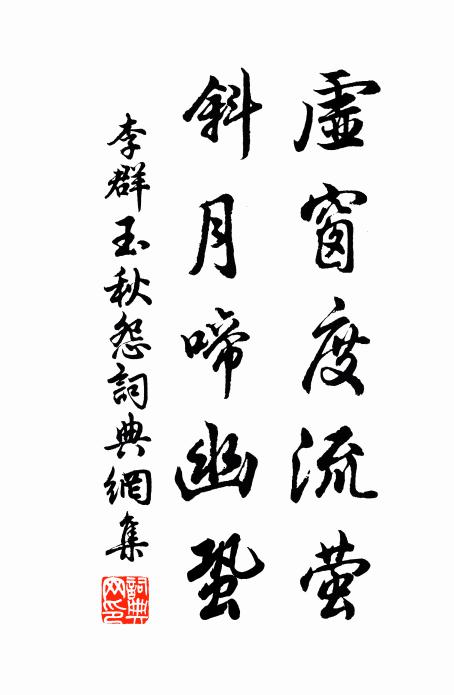 虛窗度流萤
斜月啼幽蛩
李群玉秋怨詞典網集
詞典網印